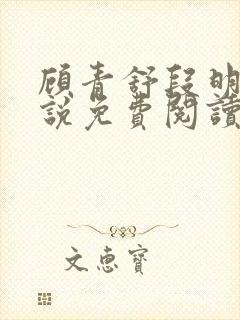 顾青舒段明
說免費閱讀
文惠寶